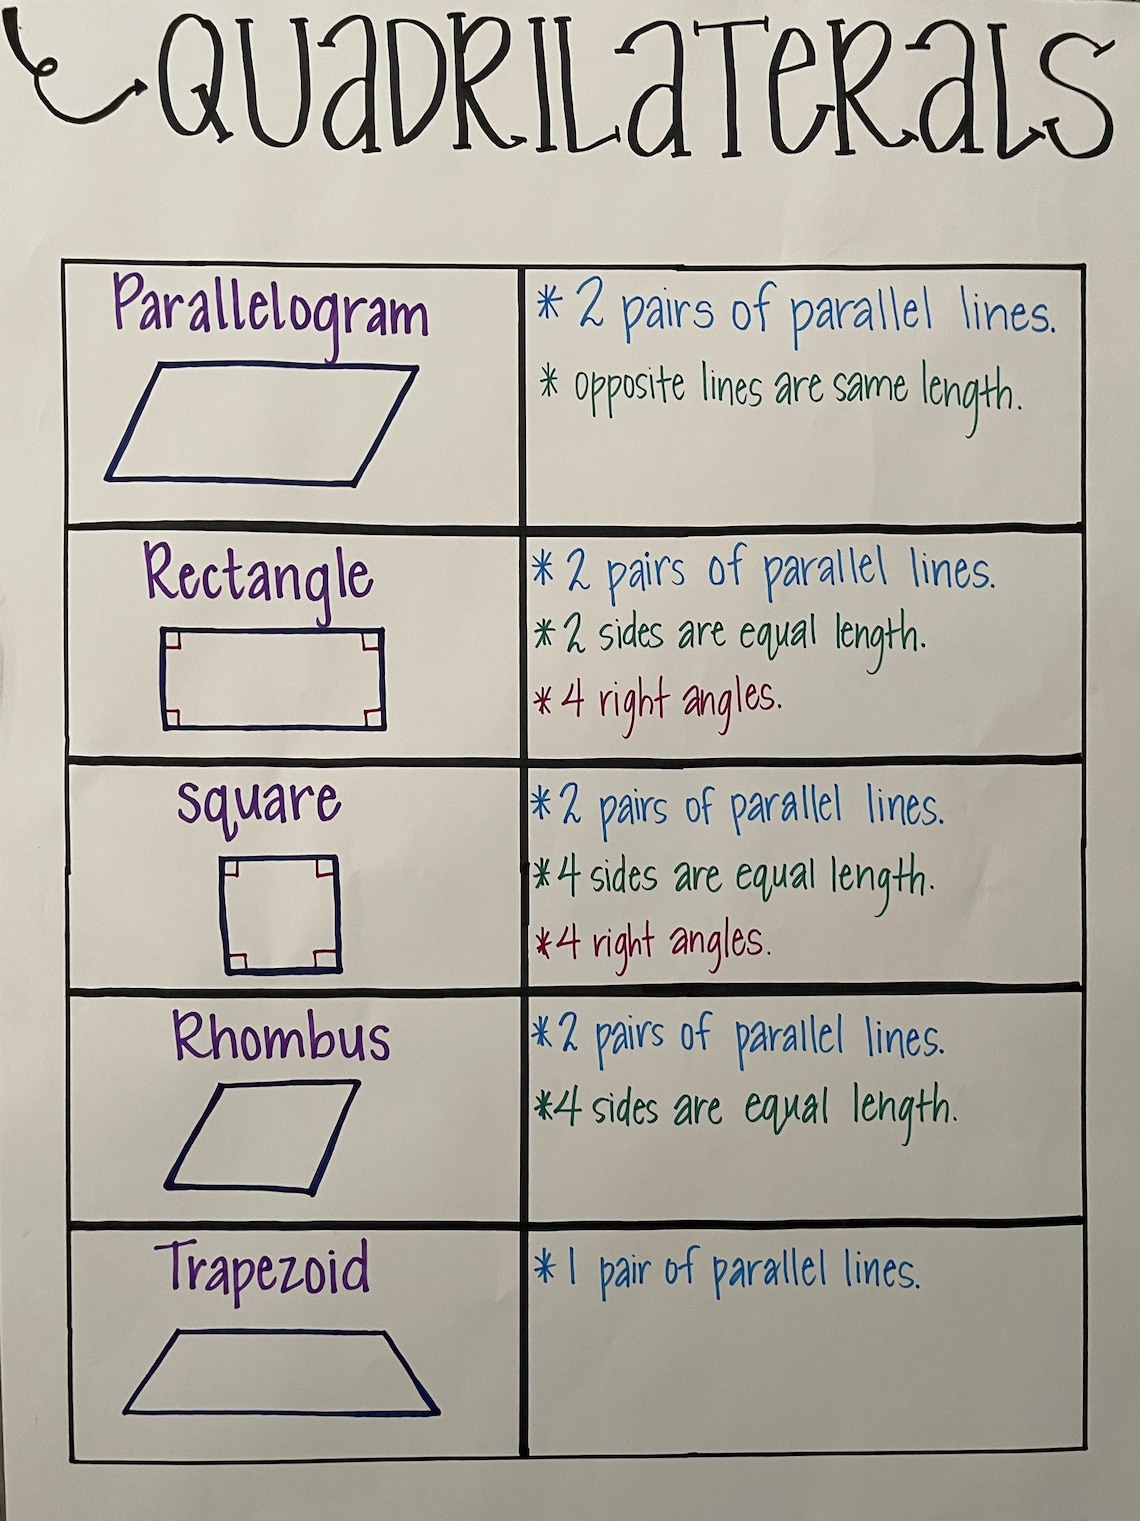 QUaDRILaTeRaLS
Parallelogram
* 2 pairs of parallel lines.
* opposite lines are same length.
Rectangle
* 2 pairs of parallel lines.
* 2 sides are equal length.
* 4 right angles.
square
* 2 pairs of parallel lines.
* 4 sides are equal length.
* 4 right angles.
Rhombus
* 2 pairs of parallel lines.
* 4 sides are equal length.
Trapezoid
* 1 pair of parallel lines.